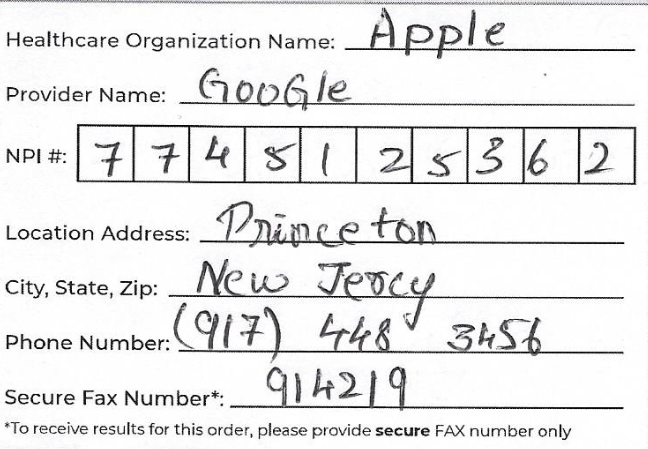 Healthcare Organization Name: Apple
Provider Name: GooGle
NPI #: 7 7 4 5 1 2 5 3 6 2
Location Address: Princeton
City, State, Zip: New Jercy
Phone Number: (917) 448 3456
Secure Fax Number*: 914219
*To receive results for this order, please provide secure FAX number only